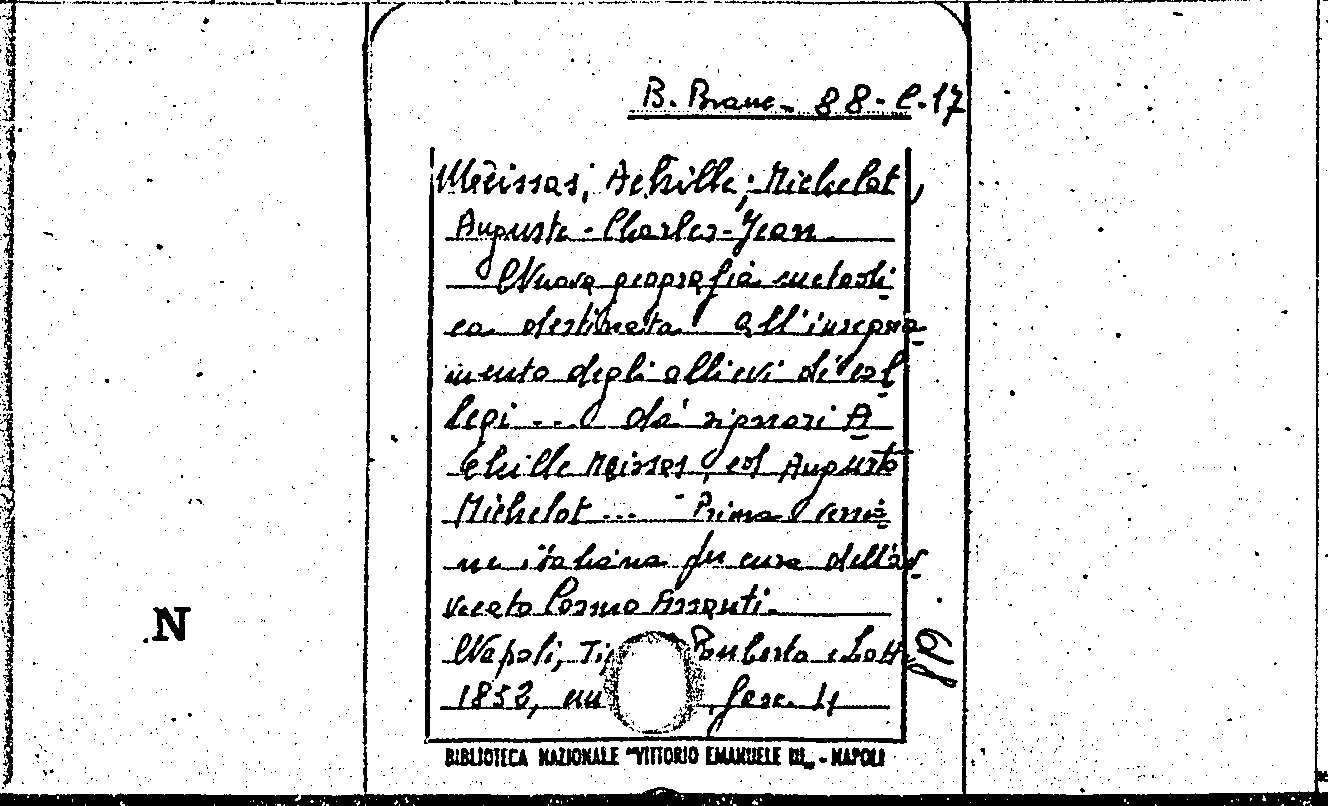 B. Branc. 88-C-17
Meissas, Achille; Michelot,
Auguste-Charles-Jean
Nuova geografia metodi
ca destinata all'insegna
mento degli allievi di col
legi ... dai signori A
chille Meissas, ed Augusto
Michelot ... Prima versio
ne italiana per cura dell'av
vocato Cosmo Assanti.
Napoli, Tip. e Lotti
1852, fasc. 4
N
BIBLIOTECA NAZIONALE "VITTORIO EMANUELE III„ - NAPOLI